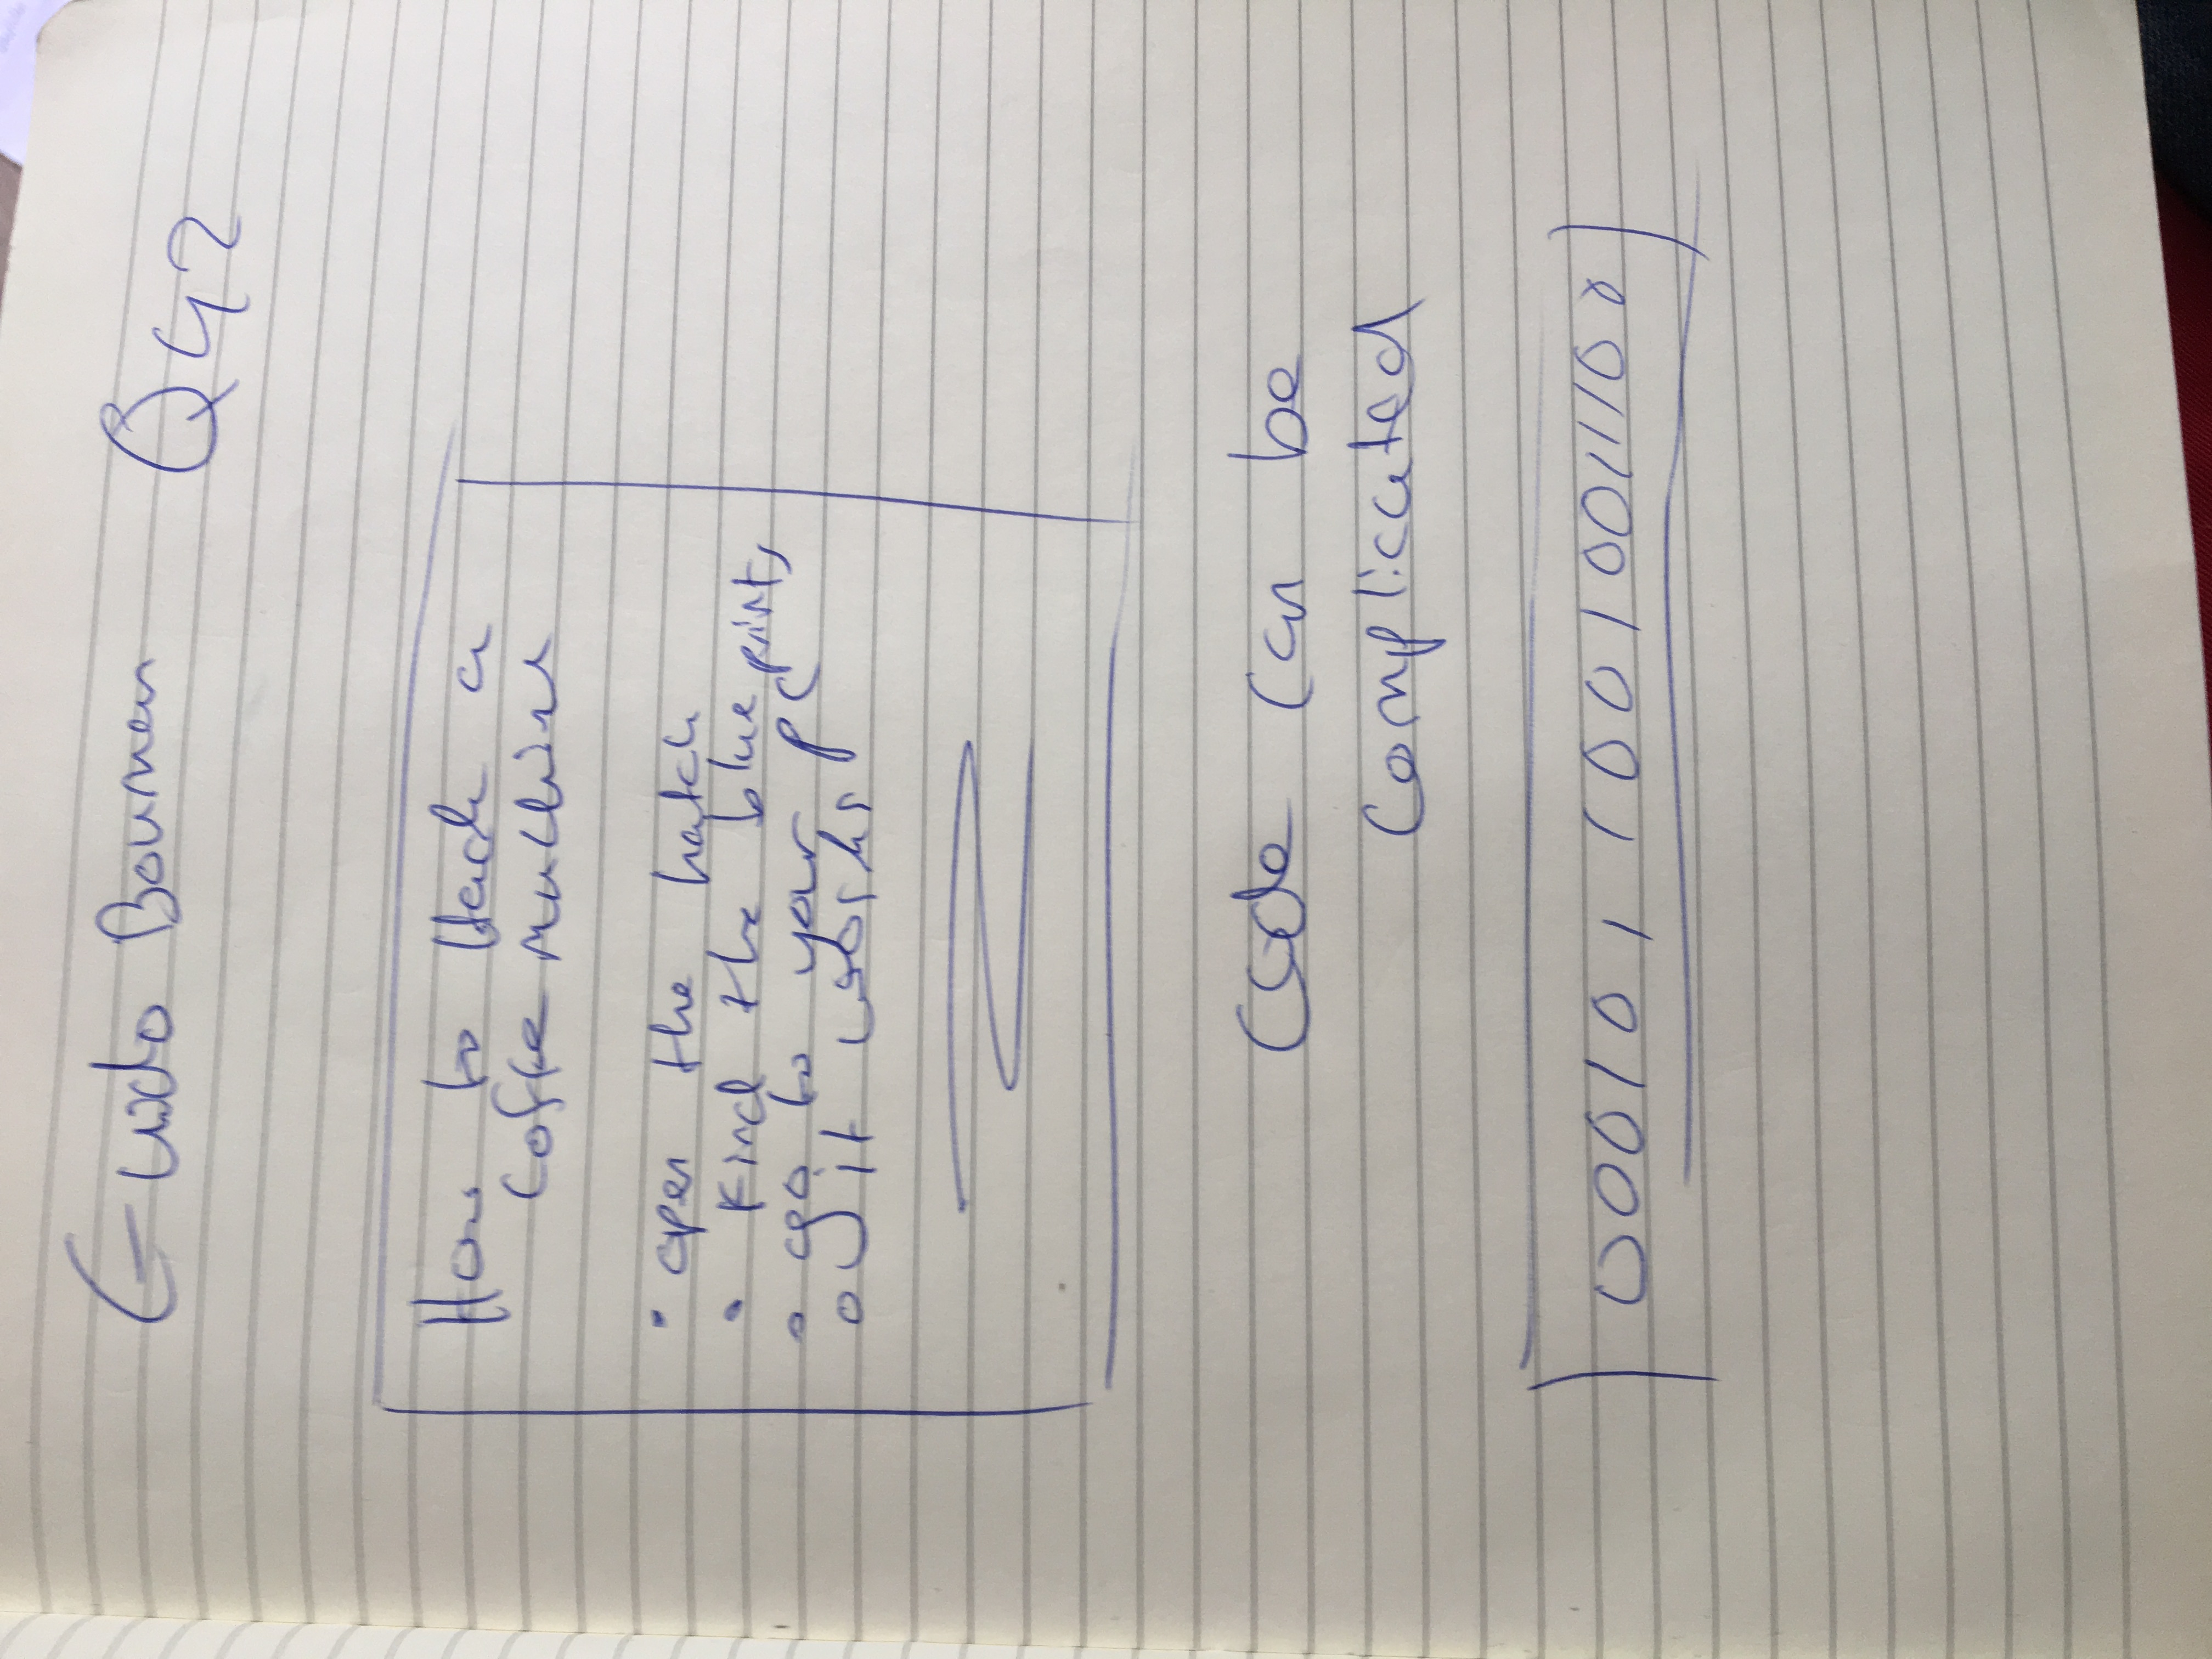 Guido Bouman Q42
How to Hack a
Coffe machine
• open the hatch
• Find the blue prints
• go to your pc
• it works
Code can be
complicated
000101100100111100